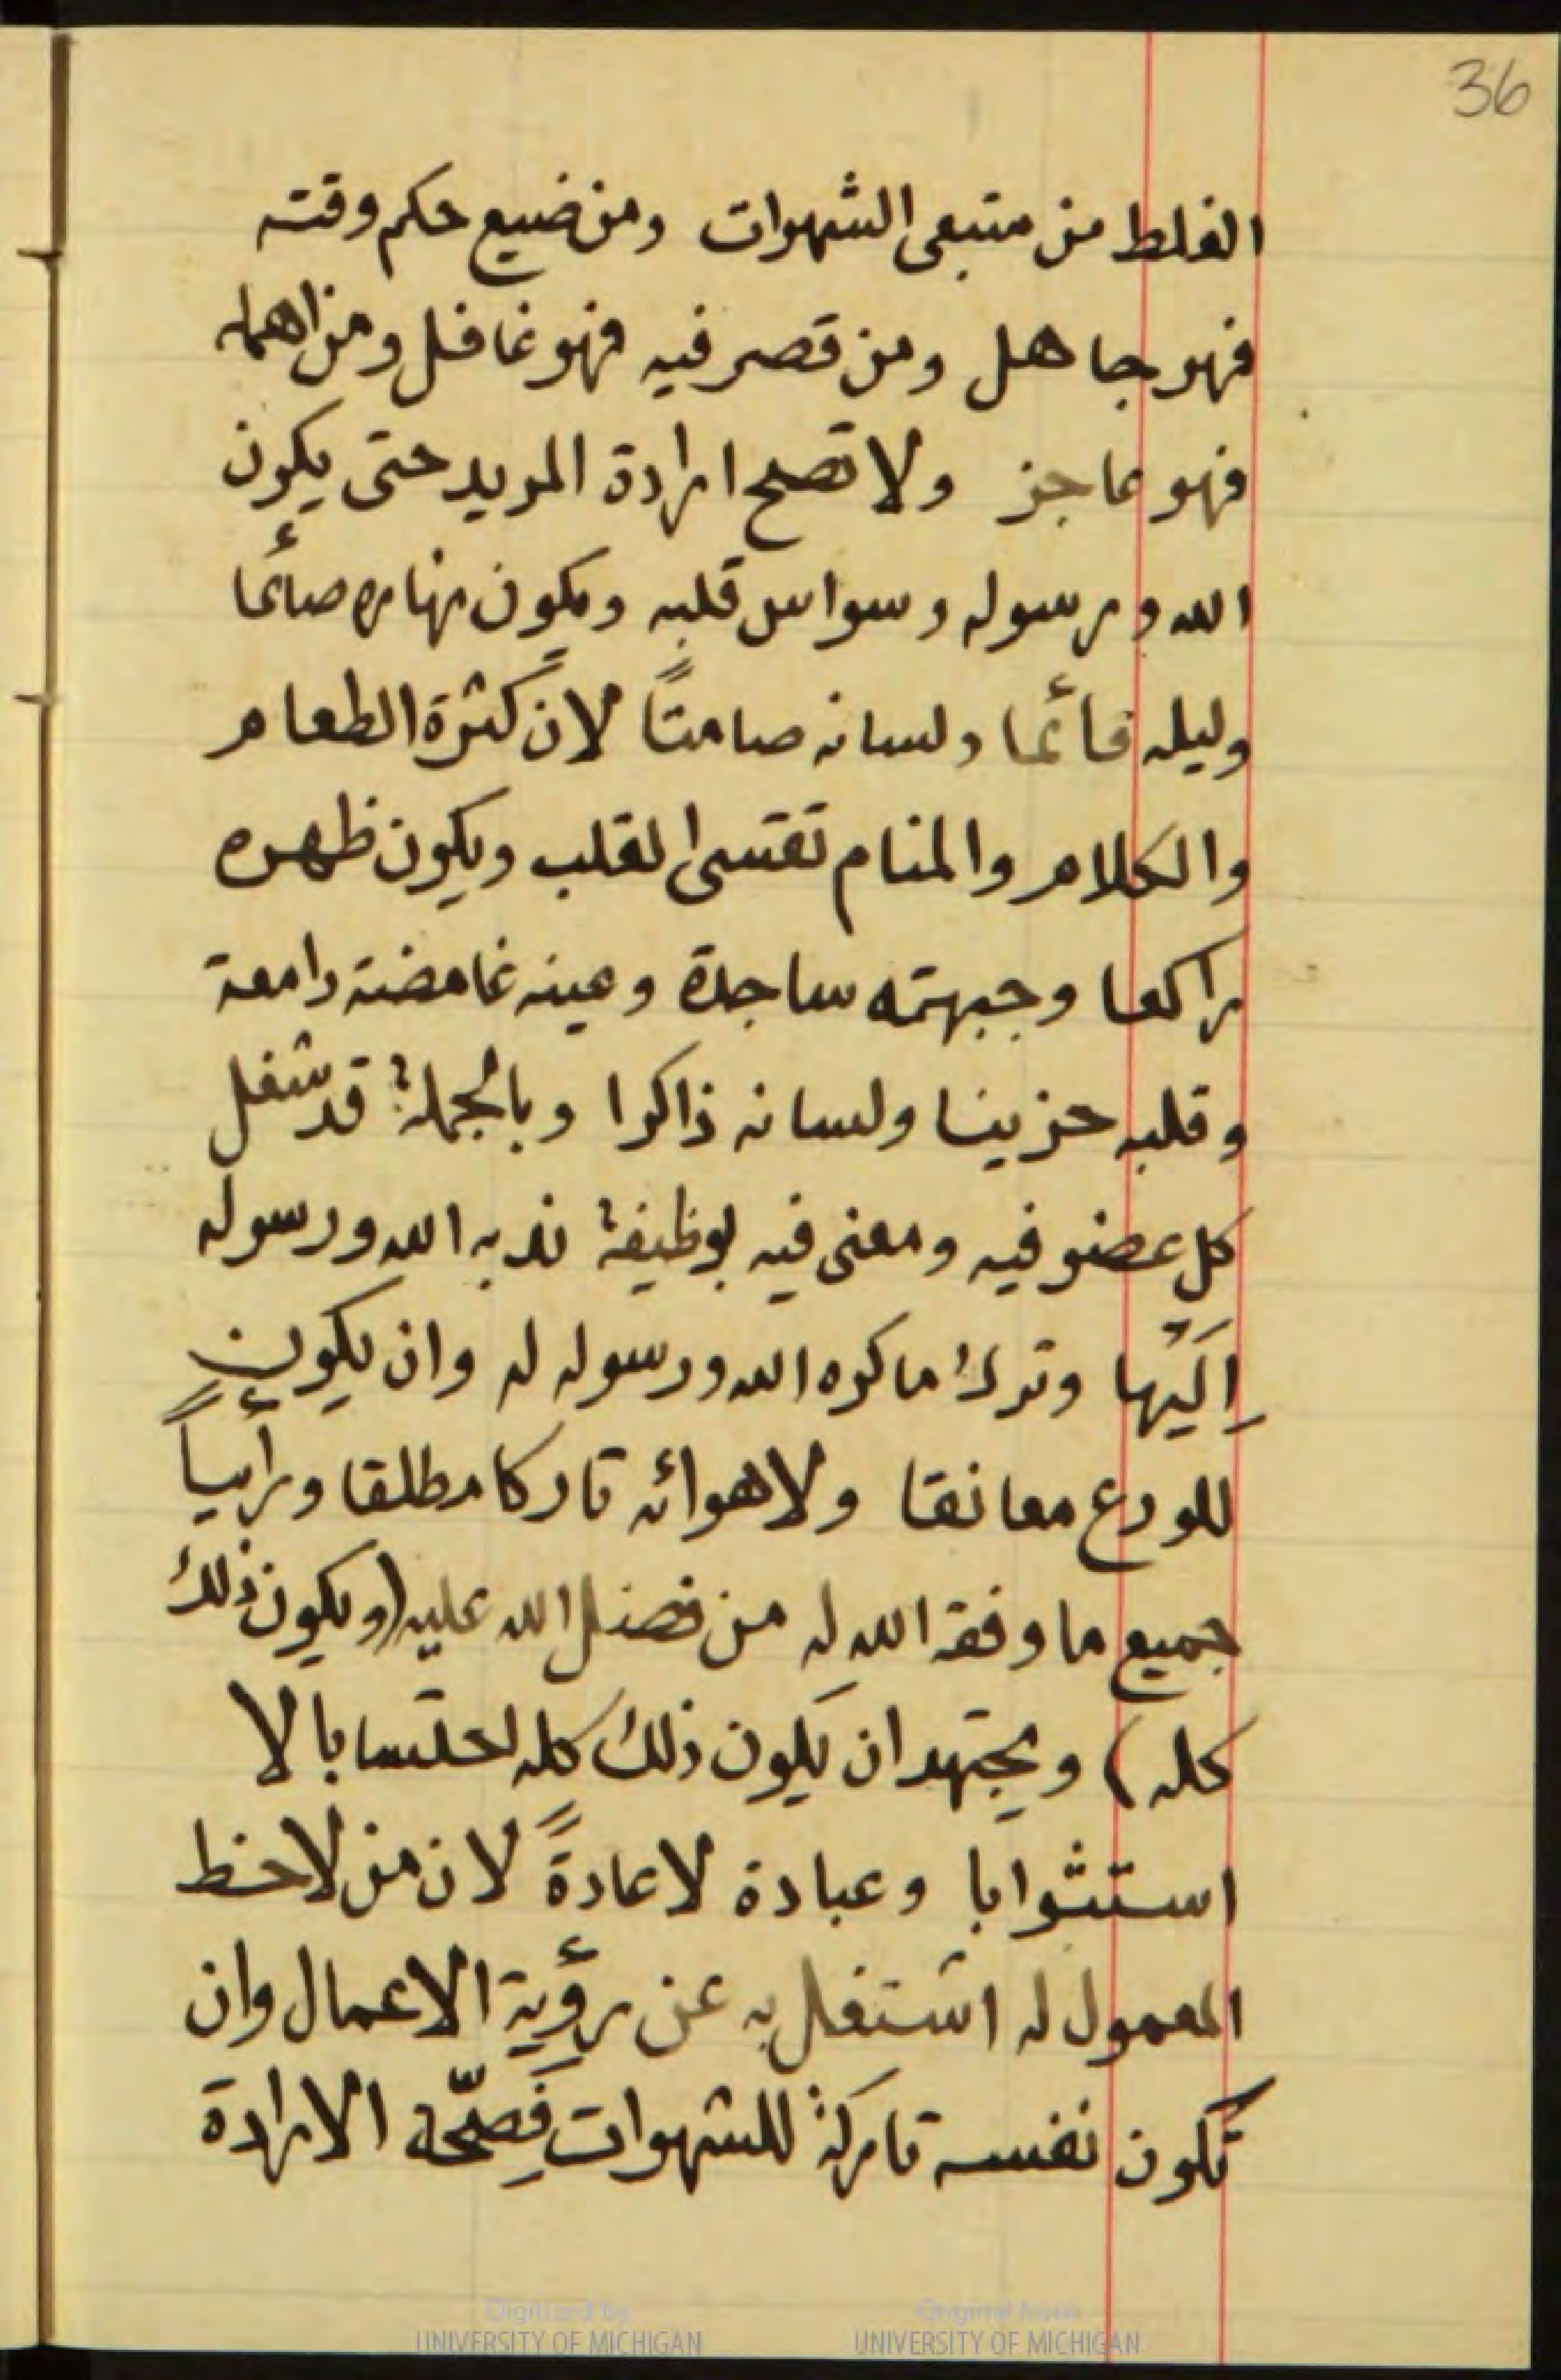 36
الغلط من متبعى الشهوات ومن ضيع حكم وقته
فهو جاهل ومن قصر فيه فهو غافل ومن اهمله
فهو عاجز ولا تصلح ارادة المريد حتى يكون
الله ورسوله وسواس قلبه ويكون نهاره صائما
وليله قائما ولسانه صامتاً لان كثرة الطعام
والكلام والمنام تقسى القلب ويكون ظهره
راكعا وجبهته ساجدة وعينه غامضة دامعة
وقلبه حزينا ولسانه ذاكرا وبالجملة قد شغل
كل عضو فيه ومعنى فيه بوظيفة ندبه الله ورسوله
اِلَيْها وترك ما كره الله ورسوله له وان يكون
للورع معانقا ولاهوائه تاركا مطلقا ورأياً
جميع ما وفقه الله له من فضل الله عليه (ويكون ذلك
كله) ويجتهد ان يكون ذلك كله احتسابا لا
استثوابا وعبادة لا عادةً لان من لاحظ
المعمول له اشتغل به عن رؤية الاعمال وان
تكون نفسه تاركة للشهوات فَصِحّة الارادة
Digitized by
UNIVERSITY OF MICHIGAN
Original from
UNIVERSITY OF MICHIGAN